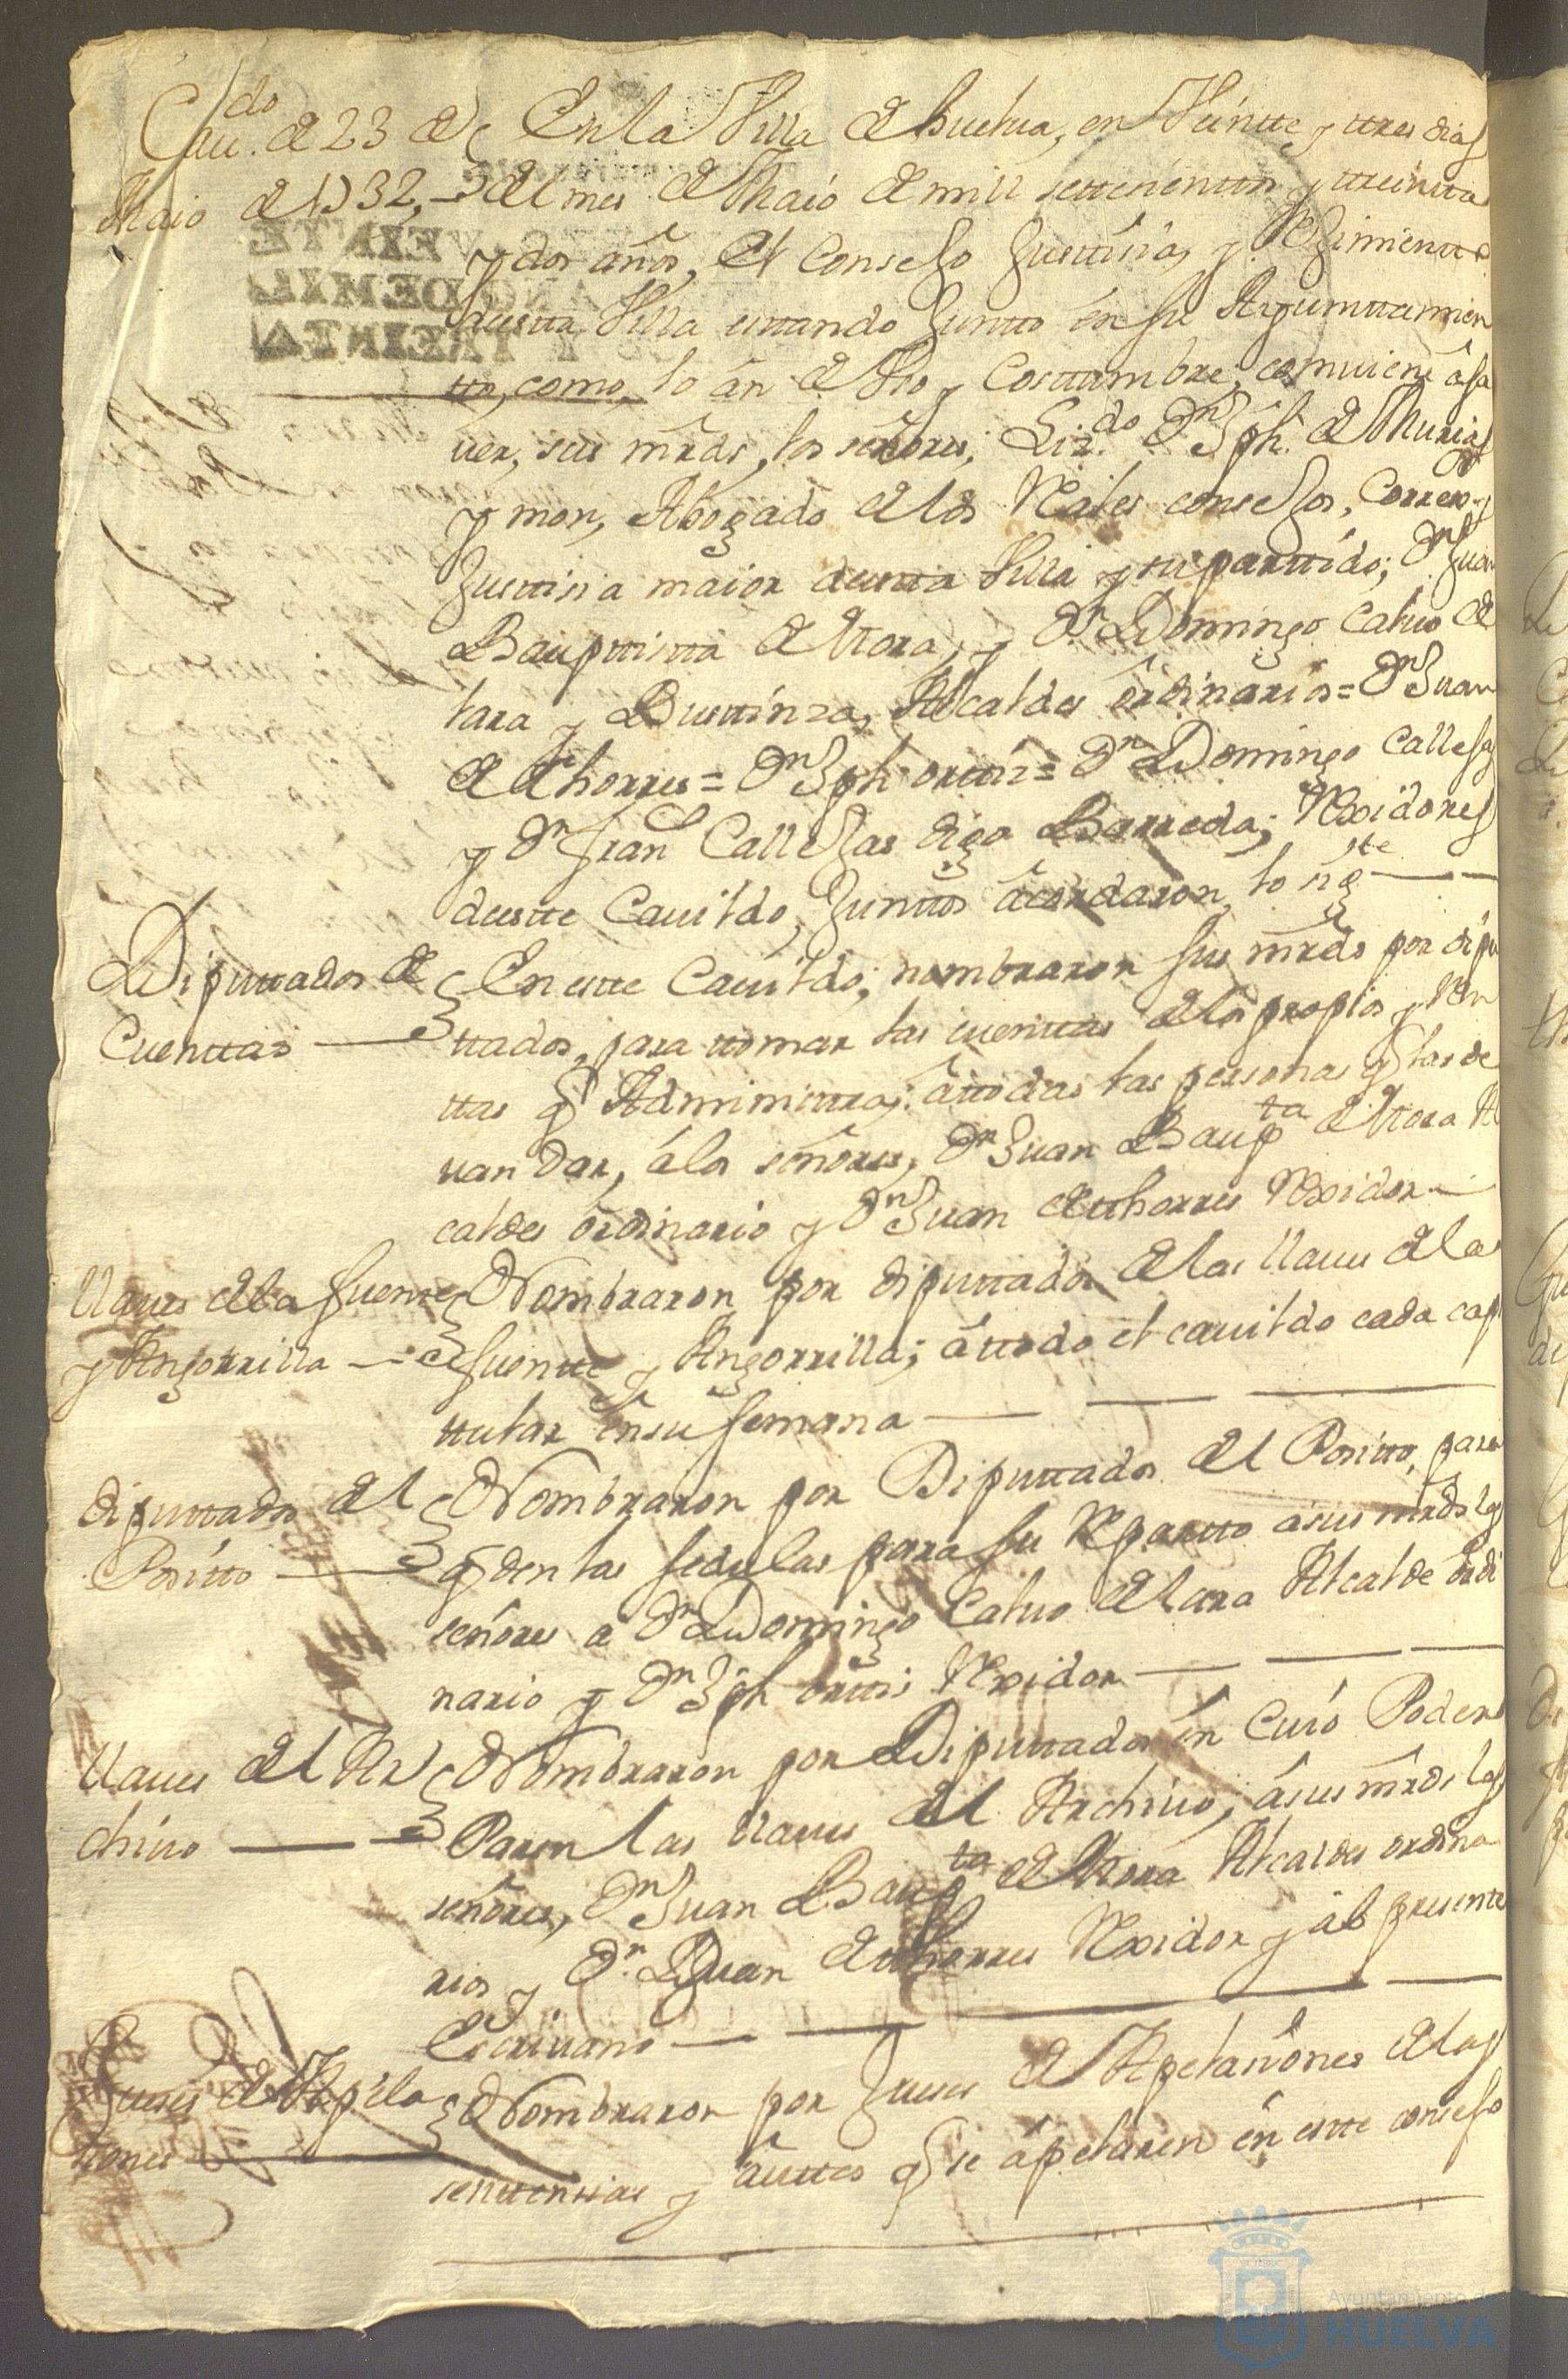 Cau.do de 23 de
Maio de 1732
En la Villa de Huelua, en Veintte y ttres dias
del mes de Maio de mill settesienttos y ttreintta
y dos años, el Consejo Justtisia, y Reximientto
destta Villa esttando Juntto en su Ayunttamien
tto, como lo án de Vso y Costtumbre, comuiene á sa
uer, sus mrds, los señores, Liz.do Dn Jph. de Murias
y mon, Abogado de los Rales consejos, Correxr y
Justtisia maior destta Villa y su parttido; Dn Juan
Baupttistta de Mora, y Dn Domingo Caluo de
lara y Busttinza, Alcaldes órdinarios = Dn Juan
de tthorres = Dn Jph orttiz = Dn Domingo Callejas
y Dn Fran.co Callejas digo Barreda; Rexidores
destte Cauildo, Junttos ácordaron, lo sigte
Diputtados de
Cuenttas
En estte Cauildo, nombraron sus mrds por dipu
ttados, para ttomar las cuenttas de los propios y Ren
ttas q Administtra, á ttodas las personas q las de
uan dar, á los señores, Dn Juan Baupta de Mora Al
caldes órdinario y Dn Juan de tthorres Rexidor
llaues de la fuente
y Angorrilla
Nombraron por diputtados de las llaues de la
fuentte y Angorrilla; á ttodo el cauildo cada capi
ttular én su semana
diputtados del
Positto
Nombraron por Diputtados del Positto, para
q den las sedulas para su Repartto á sus mrds los
señores a Dn Domingo Caluo de lara Alcalde órdi
nario y Dn Jph orttis Rexidor
llaues del Ar
chiuo
Nombraron por Diputtados én Cuio Poder
Paren las llaues del Archiuo, á sus mrds los
señores, Dn Juan Baupta de Mora Alcaldes ordina
rios y Dn Juan de tthorres Rexidor y ál presente
Escriuano
Jueses de Apela
siones
Nombraron por Jueses de Apelasiónes de las
senttensias y áuttos q se ápelaren én estte consejo
Ayuntamiento de
HUELVA